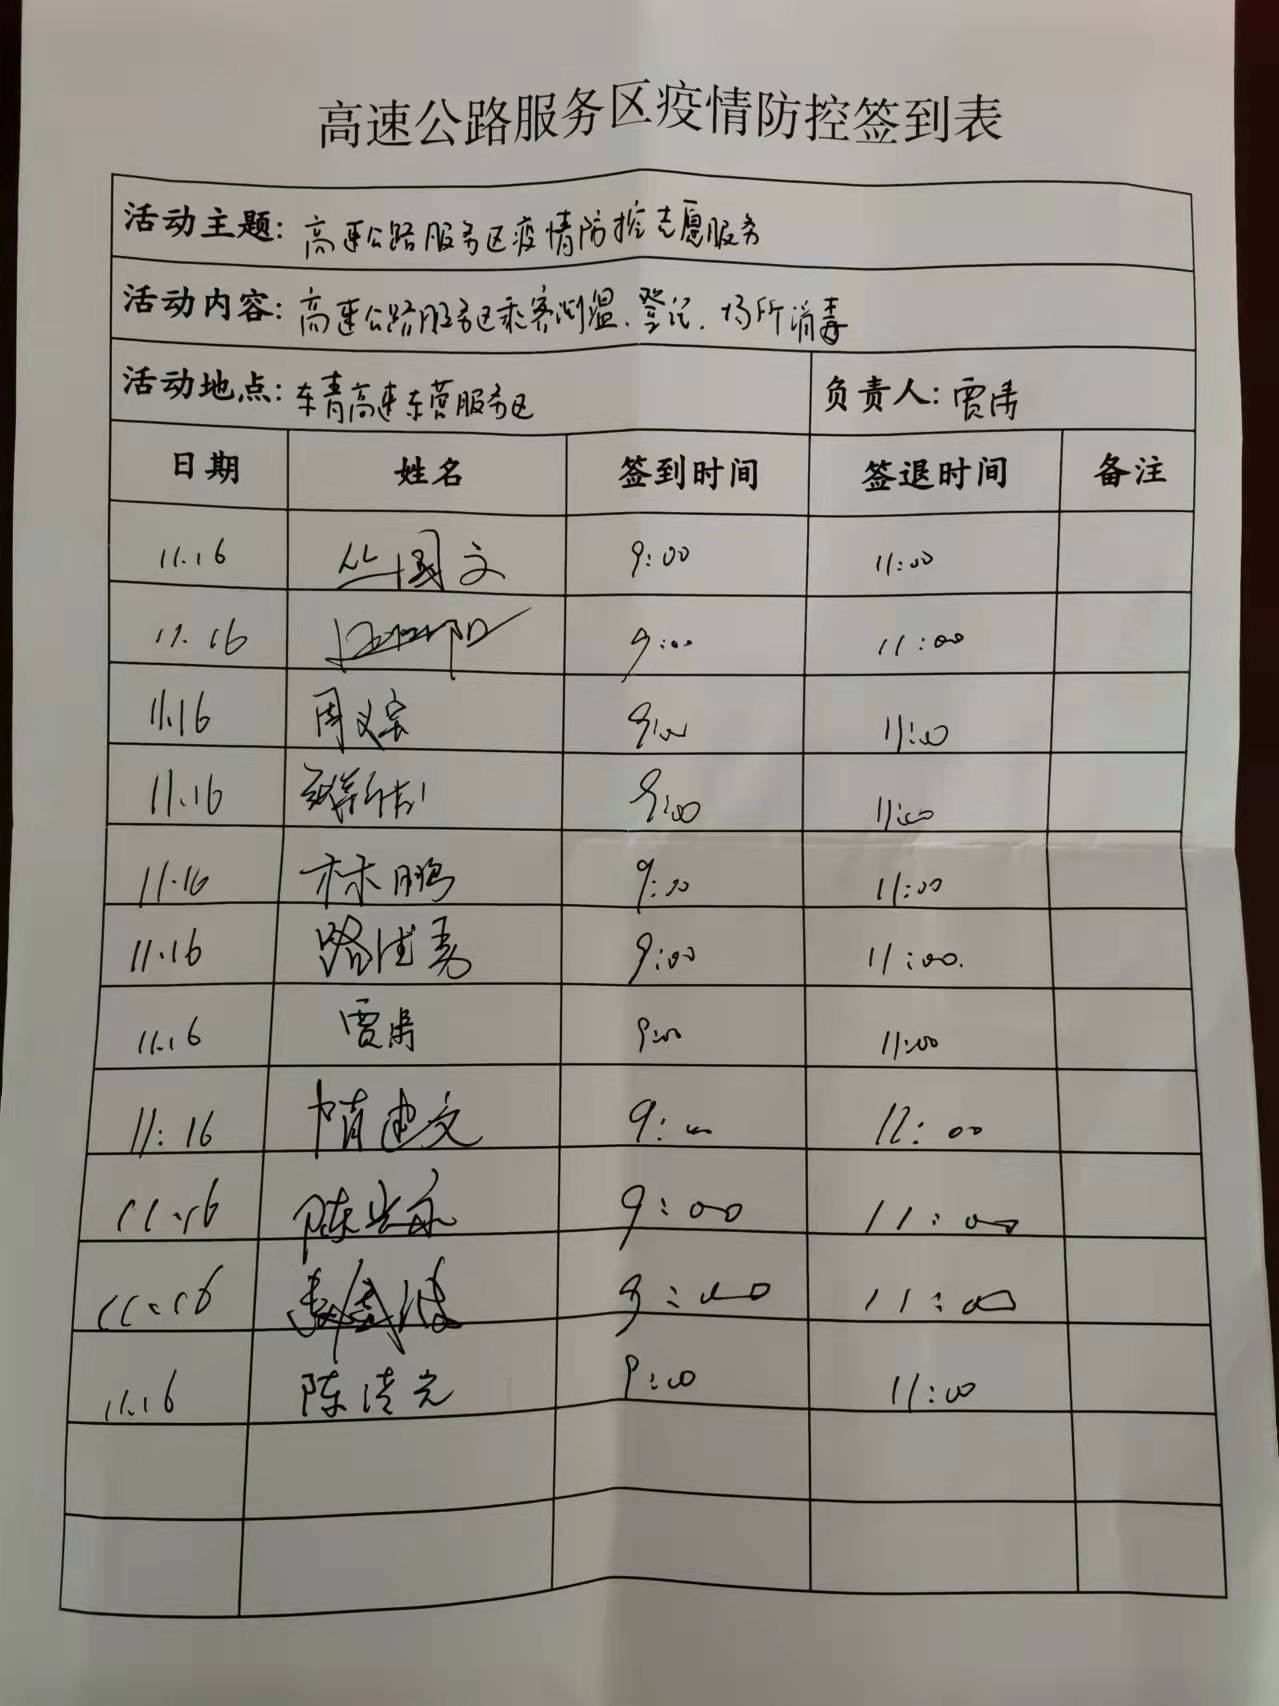 高速公路服务区疫情防控签到表
活动主题: 高速公路服务区疫情防控志愿服务
活动内容: 高速公路服务区乘客测温、登记、场所消毒
活动地点: 东青高速东营服务区 负责人: 贾
日期 姓名 签到时间 签退时间 备注
11.16 丛国文 9:00 11:00
11.16 9:00 11:00
11.16 周文宗 9:00 11:00
11.16 9:00 11:00
11.16 林鹏 9:00 11:00
11.16 路 9:00 11:00.
11.16 贾 9:00 11:00
11:16 文 9:00 12:00
11.16 陈 永 9:00 11:00
11.16 9:00 11:00
11.16 陈清光 9:00 11:00